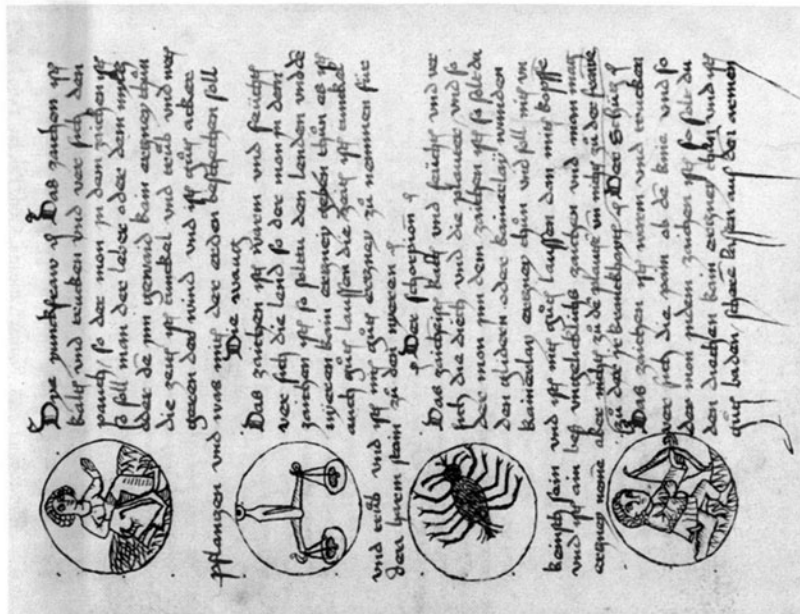 Dye junckfraw Das zaichen ist
kalt und trucken und wer sich den
pauch so der mon in dem zaichen ist
so soll man der leber oder dem milcz
oder de kain ercznej thün
die zeit ist tunckel und trüb und
geren den wind und ist gůt acker
pflanczen und was mit der erden beschechen soll
Die waug
Das zaichen ist warm und feücht
wer sich die lend so der mon in dem
zaichen ist so soltu den lenden und de
nyeren kain ercznej geben thün es ist
auch gůt laussen die zeit ist tunckel
und trüb und ist nit gůt ercznej zů nemmen für
den harm stain zů den nyeren
Der schorpion
Das zaichen ist kalt und feücht und wer
sich die diech und die plauter und so
der mon inn dem zaichen ist so solt du
den glidern oder kainerlaÿ wunden
kainerlaÿ ercznej thün und soll nit
sein und ist nit gůt laussen dan mit köpffe
und ist ain zaichen und man mag
ercznej neme aber nicht zů de nicht zů der
zů der Der schücz
Das zaichen ist warm und trucken
wer sich die pain ab de knie und so
der mon in dem zaichen ist so solt du
den diechen kain ercznej thün und ist
gůt baden lassen auß der armen